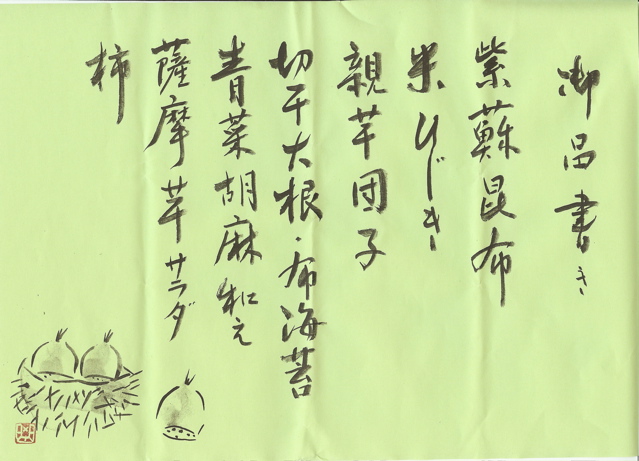 御品書き
紫蘇昆布
米ひじき
親芋団子
切干大根・布海苔
青菜胡麻和え
薩摩芋サラダ
柿